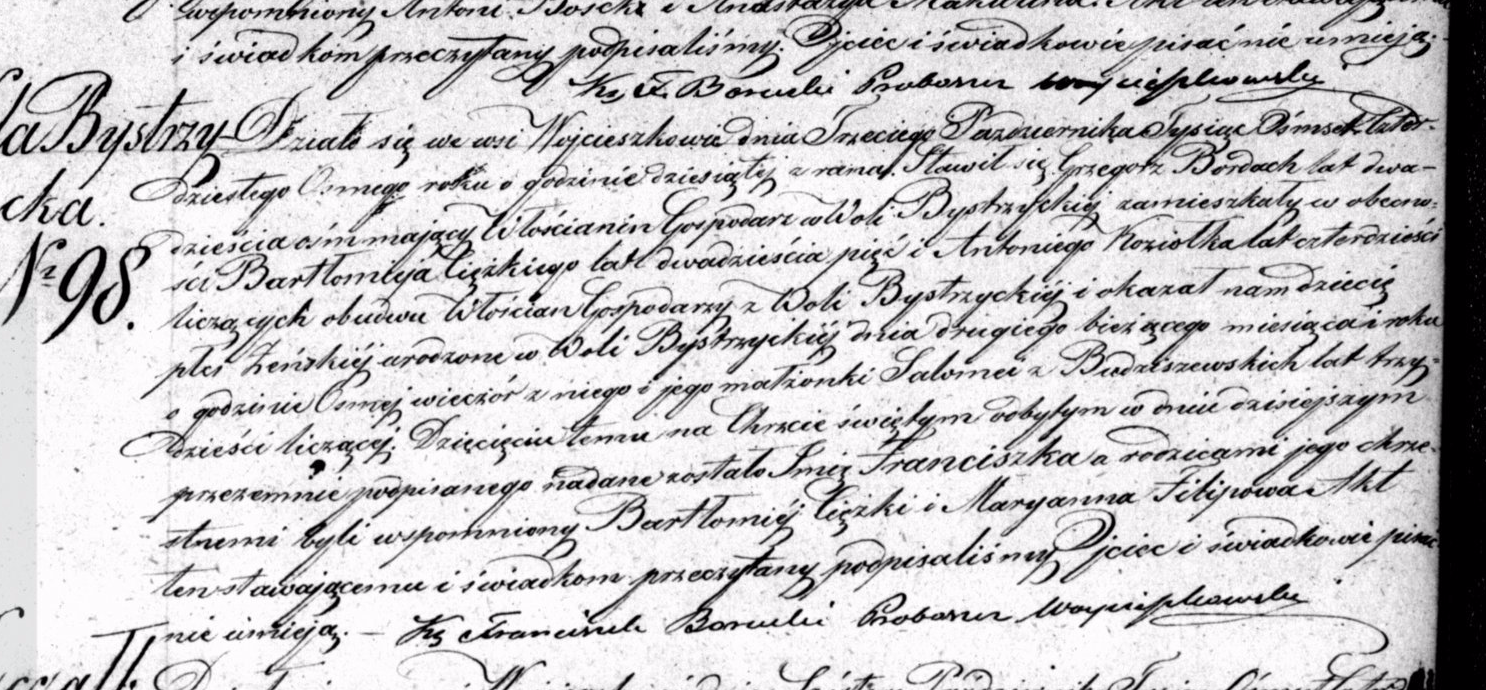 wspomniony Antoni
i świadkom przeczytany podpisaliśmy. Ojciec i świadkowie pisać nie umieją.
Proboszcz Wojcieszkowski
Bystrzy- Działo się we wsi Wojcieszkowie dnia Trzeciego Października Tysiąc Ośmset Czter-
dziestego Osmego roku o godzinie dziesiątej z rana. Stawił się Grzegorz Bordach lat dwa-
cka. dzieścia ośm mający Włościanin Gospodarz w Woli Bystrzyckiéj zamieszkały w obecno-
Nr 98. ści Bartłomieja Ciężkiego lat dwadzieścia pięć i Antoniego Koziołka lat czterdzieści
liczących obudwu Włościan Gospodarzy z Woli Bystrzyckiéj i okazał nam dziecię
płci Żeńskiéj urodzone w Woli Bystrzyckiéj dnia drugiego bieżącego miesiąca i roku
o godzinie Osmej wieczór z niego i jego małżonki Salomei z Budziszewskich lat trzy-
dzieści liczącéj. Dziecięciu temu na Chrzcie świętym odbytym w dniu dzisiejszym
przezemnie podpisanego nadane zostało Imię Franciszka a rodzicami jego chrze-
stnemi byli wspomniony Bartłomiéj Ciężki i Maryanna Filipowa Akt
ten stawającemu i świadkom przeczytany podpisaliśmy Ojciec i świadkowie pisać
nie umieją. — Ks Franciszek Proboszcz Wojcieszkowski